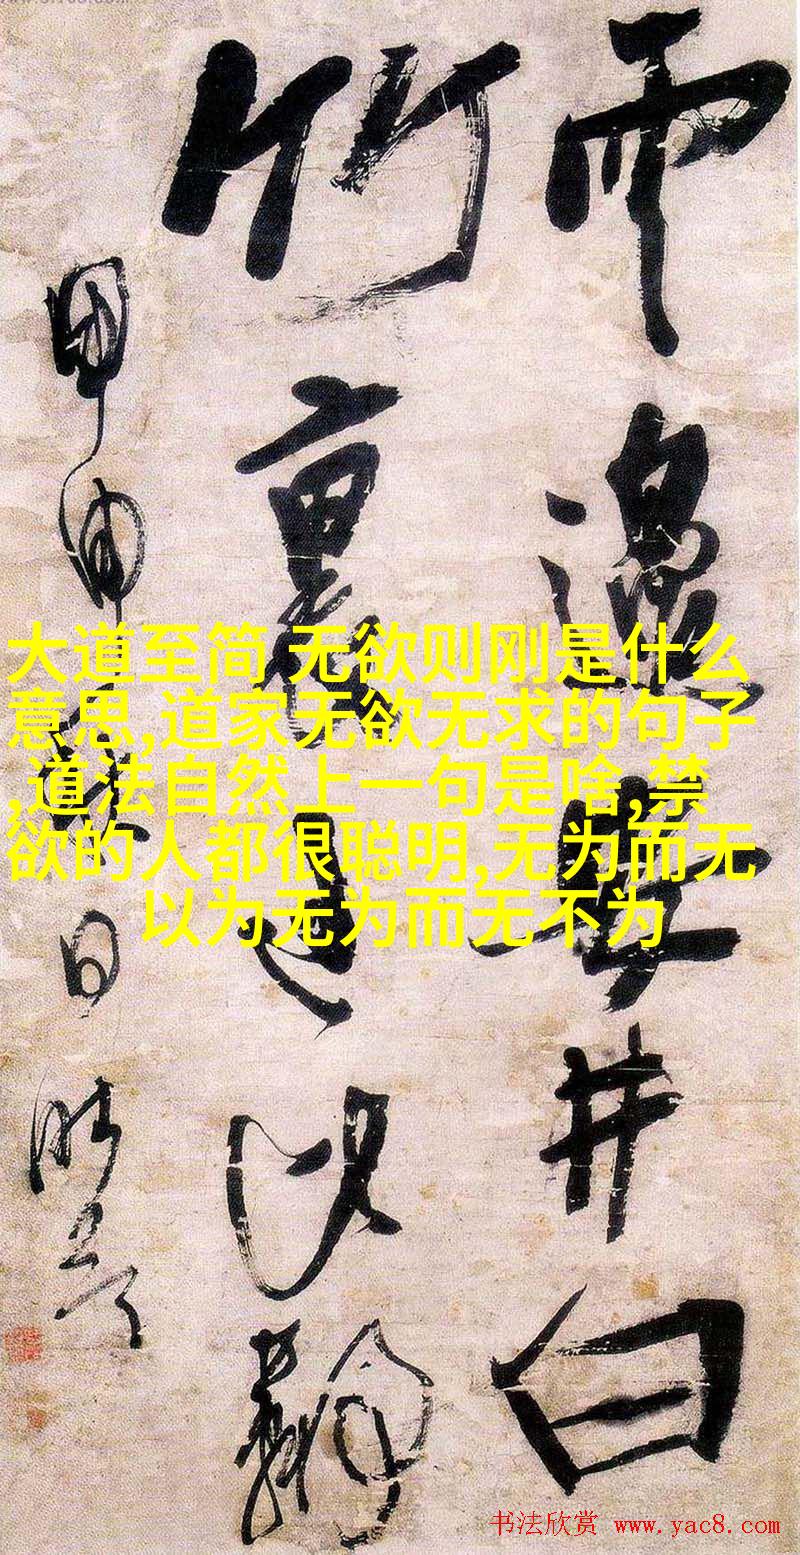 邊安井臼
竹裏
甲申日
大道至简 无欲则刚是什么
意思,道家无欲无求的句子
,道法自然上一句是啥,禁
欲的人都很聪明,无为而无
以为无为而无不为
书法欣赏 www.yac8.com